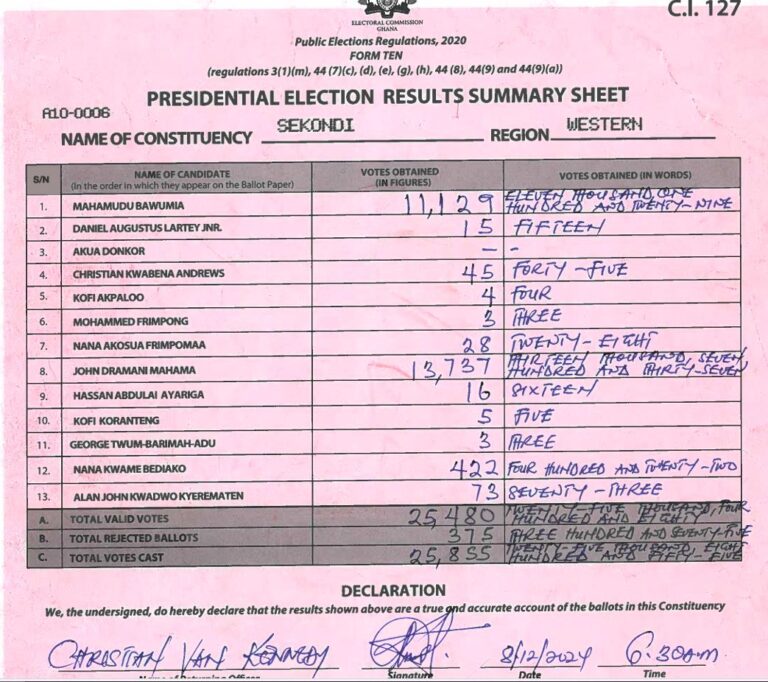 C.I. 127
ELECTORAL COMMISSION
GHANA
Public Elections Regulations, 2020
FORM TEN
(regulations 3(1)(m), 44 (7)(c), (d), (e), (g), (h), 44 (8), 44(9) and 44(9)(a))
PRESIDENTIAL ELECTION RESULTS SUMMARY SHEET
A10-0006
NAME OF CONSTITUENCY SEKONDI REGION WESTERN
S/N NAME OF CANDIDATE (In the order in which they appear on the Ballot Paper) VOTES OBTAINED (IN FIGURES) VOTES OBTAINED (IN WORDS)
1. MAHAMUDU BAWUMIA 11,129 ELEVEN THOUSAND, ONE HUNDRED AND TWENTY-NINE
2. DANIEL AUGUSTUS LARTEY JNR. 15 FIFTEEN
3. AKUA DONKOR - -
4. CHRISTIAN KWABENA ANDREWS 45 FORTY-FIVE
5. KOFI AKPALOO 4 FOUR
6. MOHAMMED FRIMPONG 3 THREE
7. NANA AKOSUA FRIMPOMAA 28 TWENTY-EIGHT
8. JOHN DRAMANI MAHAMA 13,737 THIRTEEN THOUSAND, SEVEN HUNDRED AND THIRTY-SEVEN
9. HASSAN ABDULAI AYARIGA 16 SIXTEEN
10. KOFI KORANTENG 5 FIVE
11. GEORGE TWUM-BARIMAH-ADU 3 THREE
12. NANA KWAME BEDIAKO 422 FOUR HUNDRED AND TWENTY-TWO
13. ALAN JOHN KWADWO KYEREMATEN 73 SEVENTY-THREE
A. TOTAL VALID VOTES 25,480 TWENTY-FIVE THOUSAND, FOUR HUNDRED AND EIGHTY
B. TOTAL REJECTED BALLOTS 375 THREE HUNDRED AND SEVENTY-FIVE
C. TOTAL VOTES CAST 25,855 TWENTY-FIVE THOUSAND EIGHT HUNDRED AND FIFTY-FIVE
DECLARATION
We, the undersigned, do hereby declare that the results shown above are a true and accurate account of the ballots in this Constituency
CHRISTIAN VAN KENNEDY 8/12/2024 6:30AM
Name of Returning Officer Signature Date Time